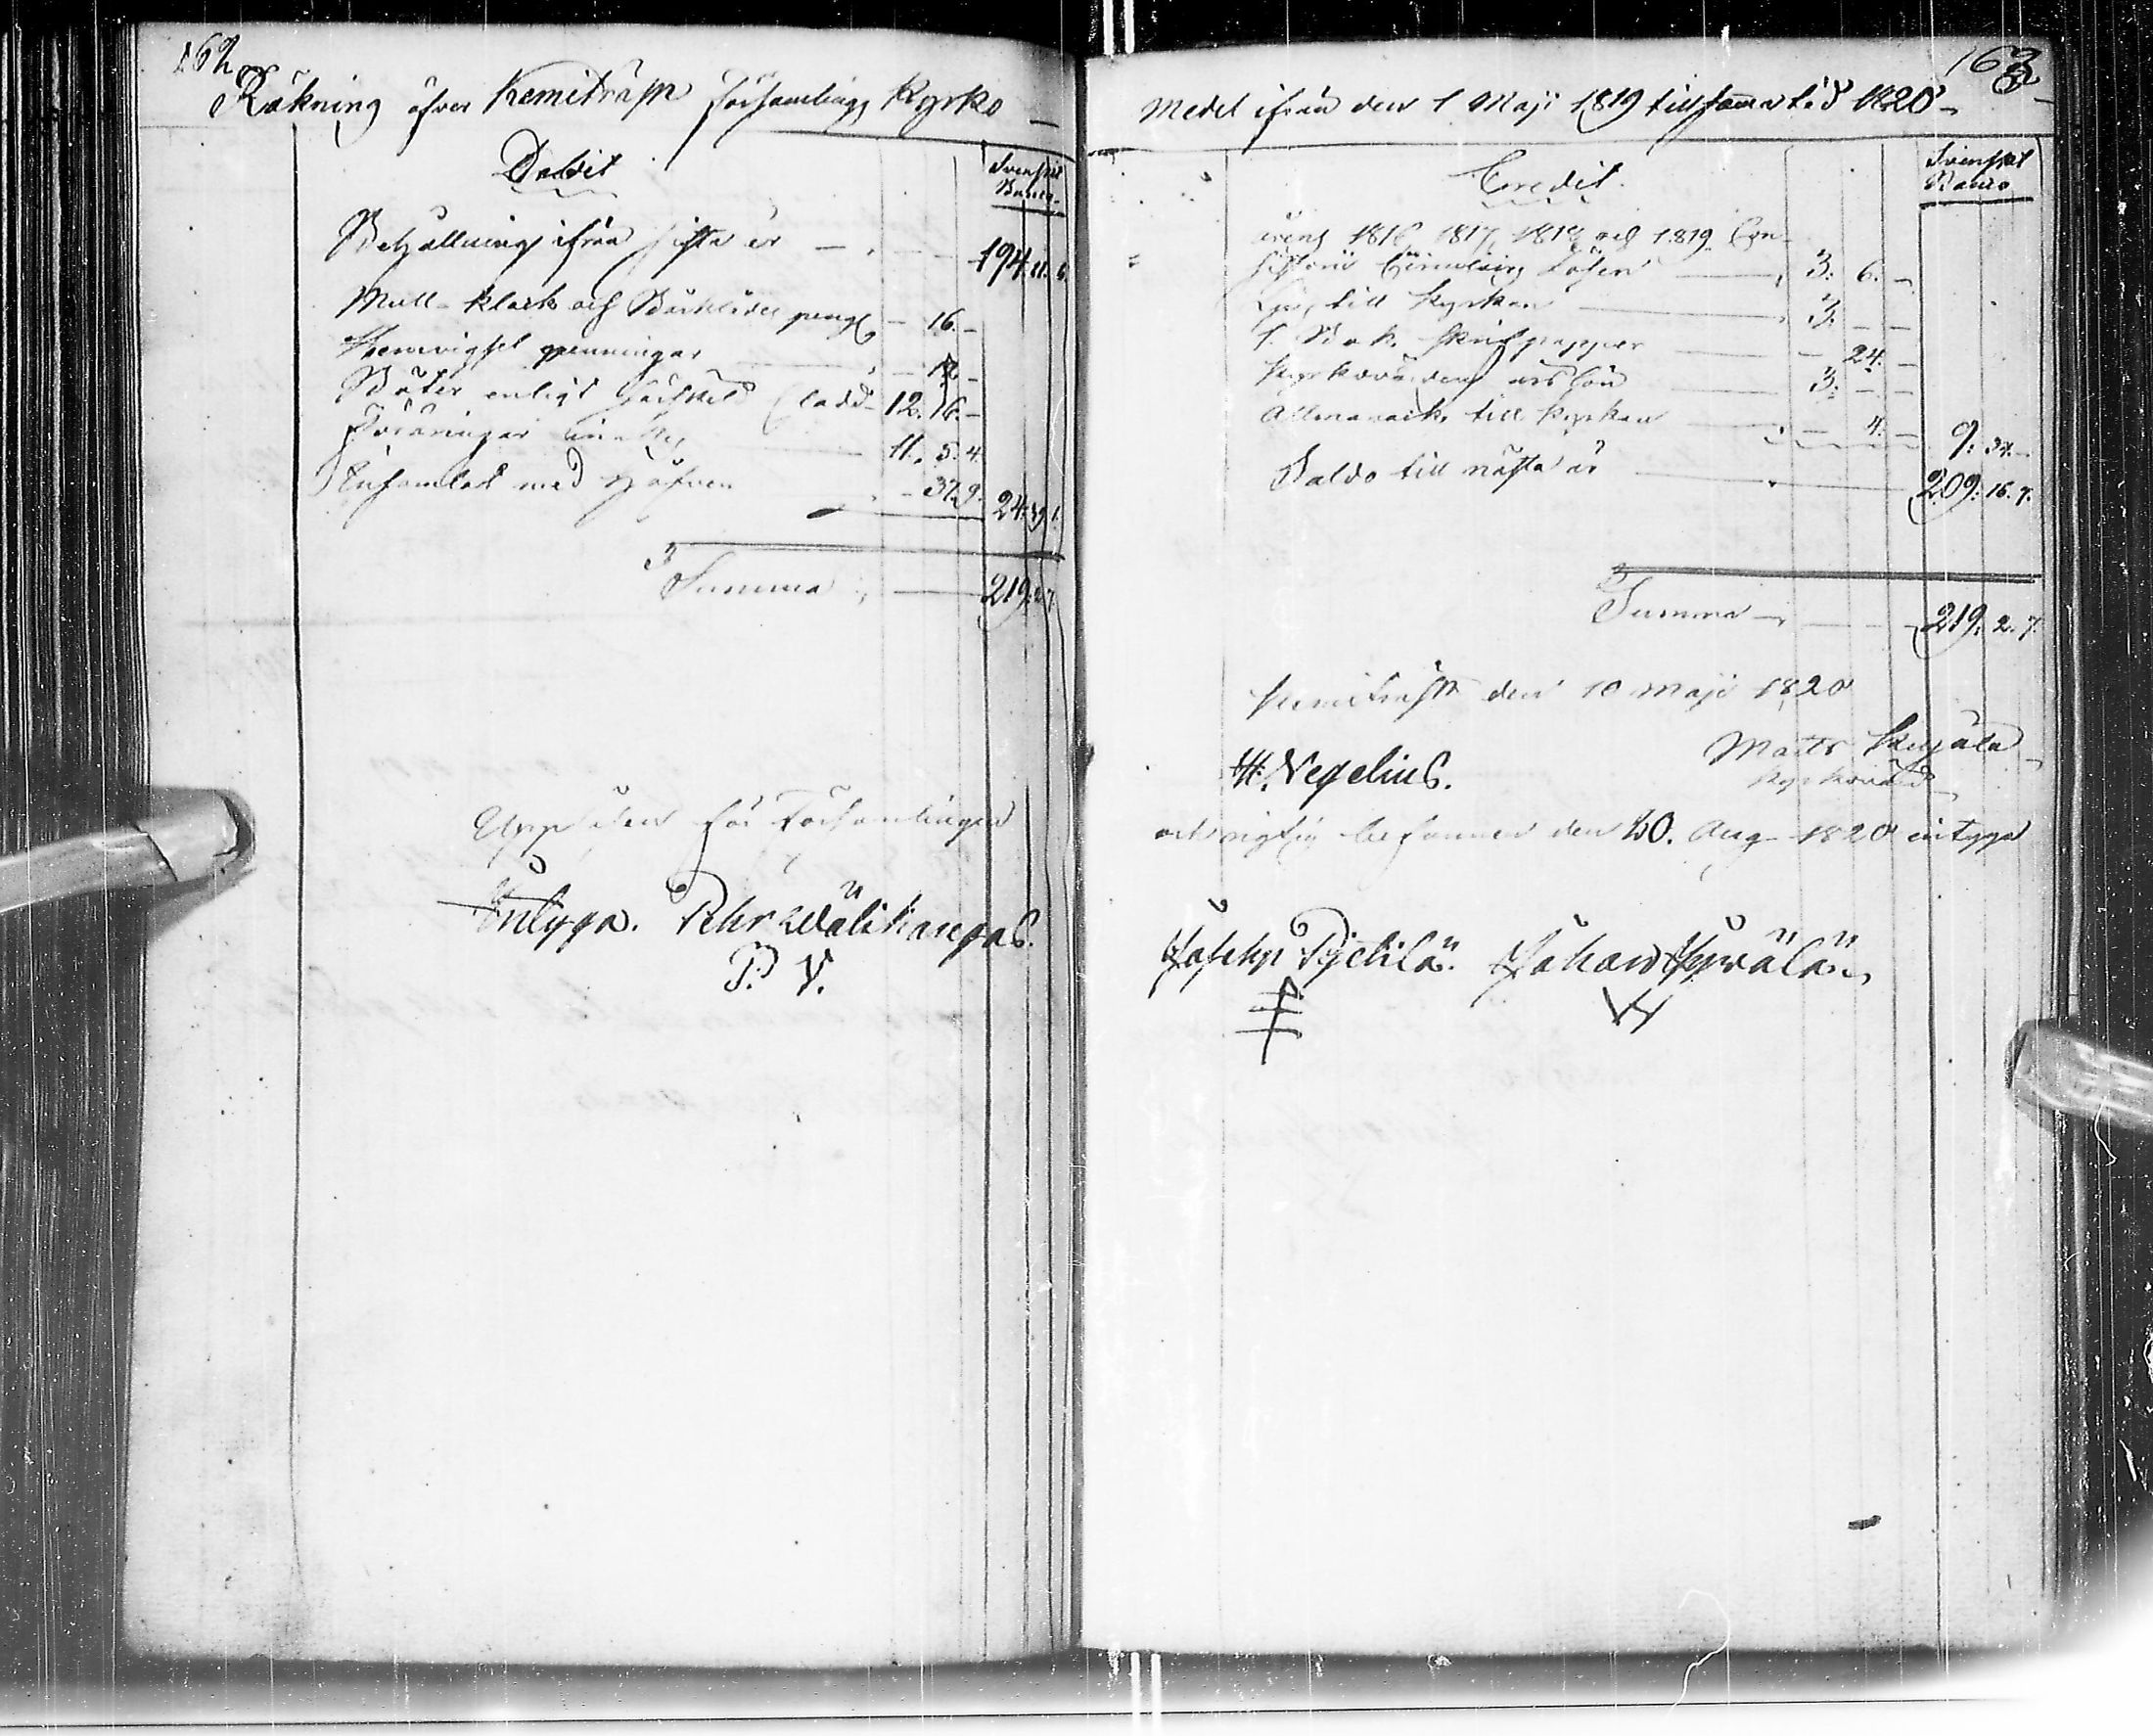 162
Räkning öfver Kemiträsk Församlings Kyrko —
Debit
Svenskt Banco
Behållning ifrån sista år — 194. 11. 6.
Mull- klock och Bårklädes peng — 16. —
penningar — 12 —
Böter enligt 12. 16. —
11. 5. 4.
Insamlat med Håfven — 37. 9. 24. 39. 1.
Summa — 219. 2. 7.
Uppläsen för Församlingen
Intyga. Pehr Wälikangas.
P. V.
163
Medel ifrån den 1 Maji 1819 till samma tid 1820 —
Credit.
Svenskt Banco
årens 1816 1817, 1818 och 1819 Con-
sistorii Circulairs Lösen — 3. 6. —
till Kyrkan — 3. — —
1. Bok skrifpapper — 24. —
Kyrkovärdens årslön 3. — —
Allmanack till Kyrkan — 4. — 9. 34. —
Saldo till nästa år — 209. 16. 7.
Summa — 219. 2. 7.
Kemiträsk den 10 Maji 1820
H. Negelius.
Matts
Kyrkovärd
och rigtig befunnen den 30. Aug 1820 intyga
Joseph Pyelilä. Johan